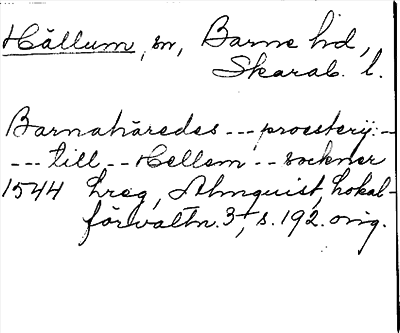 Hällum, sn, Barne hd,
Skarab. l.
Barnahäredes --- proesterij:-
--- till -- Hellem -- sockner
1544 hreg, Almquist, Lokal-
förvaltn. 3, s. 192. orig.